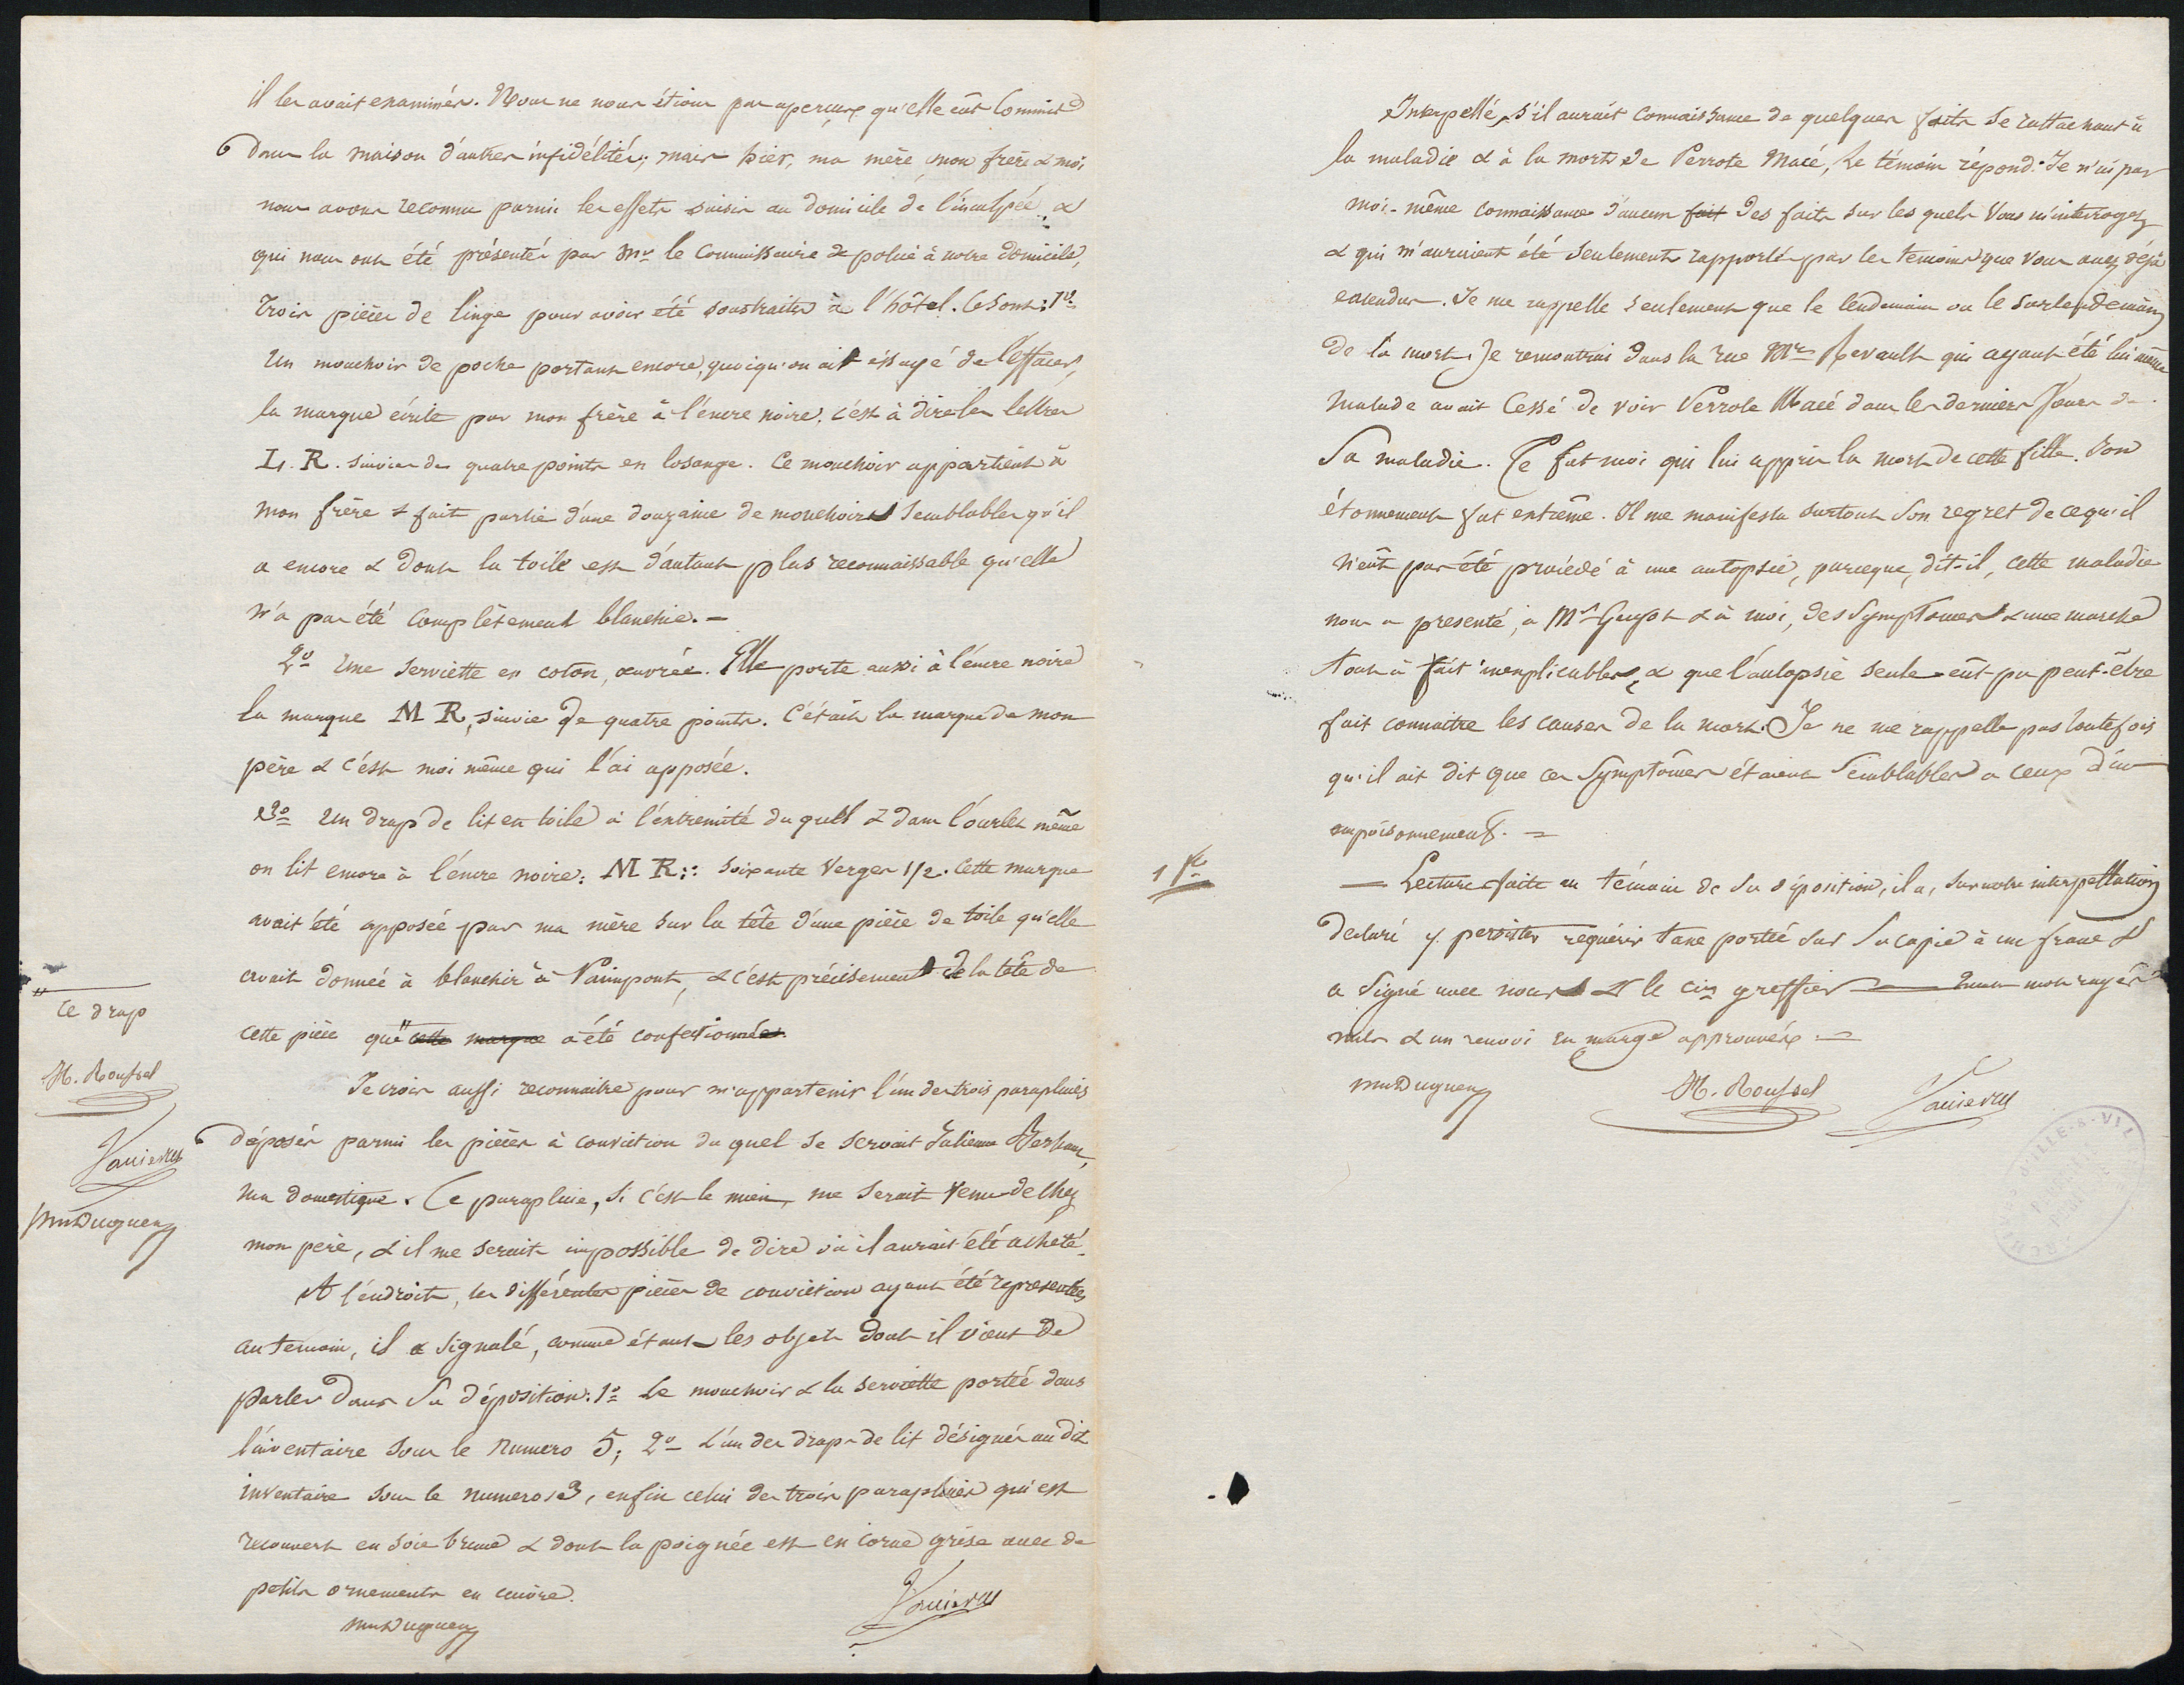 il les avait examinés. Nous ne nous étions pas aperçus qu'elle eût commis
dans la maison d'autres infidélités; mais hier, ma mère, mon frère & moi,
nous avons reconnu parmi les effets saisis au domicile de l'inculpée &
qui nous ont été présentés par Mr le Commissaire de police à notre domicile,
trois pièces de linge pour avoir été soustraites à l'hôtel. Ce sont: 1º
Un mouchoir de poche portant encore, quoiqu'on ait essayé de l'effacer,
la marque écrite par mon frère à l'encre noire, c'est à dire les lettres
L. R. suivies de quatre points en losange. Ce mouchoir appartient à
mon frère & fait partie d'une douzaine de mouchoirs semblables qu'il
a encore & dont la toile est d'autant plus reconnaissable qu'elle
n'a pas été complètement blanchie. =
2º Une serviette en coton, ouvrée. Elle porte aussi à l'encre noire
la marque M R, suivie de quatre points. C'était la marque de mon
père & c'est moi même qui l'ai apposée.
3º Un drap de lit en toile à l'extremité du quel & dans l'ourlet même
on lit encore à l'encre noire: M R:: soixante Verges 1/2. Cette marque
avait été apposée par ma mère sur la tête d'une pièce de toile qu'elle
avait donnée à blanchir à Paimpont, & c'est précisement de la tête de
cette pièce que " cette marque a été confectionnée.
" Ce drap
H. Roussel
Vannier
Mn Duguen
Je crois aussi reconnaitre pour m'appartenir l'un des trois parapluies
déposés parmi les pièces à conviction du quel se servait Julienne
ma domestique. Ce parapluie, si c'est le mien, me serait venu de chez
mon père, & il me serait impossible de dire où il aurait été acheté.
A l'endroit, les différentes pièces de conviction ayant été representées
au temoin, il a signalé, comme étant les objets dont il vient de
parler dans sa déposition: 1º Le mouchoir & la serviette portée dans
l'inventaire sous le numero 5; 2º L'un des draps de lit désignés au dit
inventaire sous le numero 3, enfin celui des trois parapluies qui est
recouvert en soie brune & dont la poignée est en corne grise avec de
petits ornements en cuivre.
Mn Duguen
Interpellé, s'il aurait connaissance de quelques faits se rattachant à
la maladie & à la mort de Perrote Macé, Le témoin répond: Je n'ai pas
moi-même connaissance d'aucun fait des faits sur les quels Vous m'interrogez
& qui m'auraient été seulement rapportés par les temoins que vous avez déjà
entendus. Je me rappelle seulement que le lendemain ou le surlendemain
de la mort, Je rencontrai dans la rue Mr Revault qui ayant été lui même
malade avait cessé de voir Perrote Macé dans les derniers Jours de
Sa maladie. Ce fut moi qui lui appris la mort de cette fille. Son
étonnement fut extrême. Il me manifesta surtout Son regret de ce qu'il
n'eût pas été procédé à une autopsie, parceque, dit-il, cette maladie
nous a presenté, à Mr Guyot & à moi, des Symptomes & une marche
tout à fait inexplicables, & que l'autopsie seule eût pu peut-être
fait connaitre les causes de la mort. Je ne me rappelle pas toutefois
qu'il ait dit que ces Symptômes étaient Semblables a ceux d'un
empoisonnement. =
1 f
— Lecture faite au témoin de Sa déposition, il a, Sur notre interpellation
declaré y persister requérir taxe portée sur Sa copie à un franc &
a Signé avec nous & le cis greffier — mots rayés
nuls & un renvoi en marge approuvés. =
Mn Duguen H. Roussel